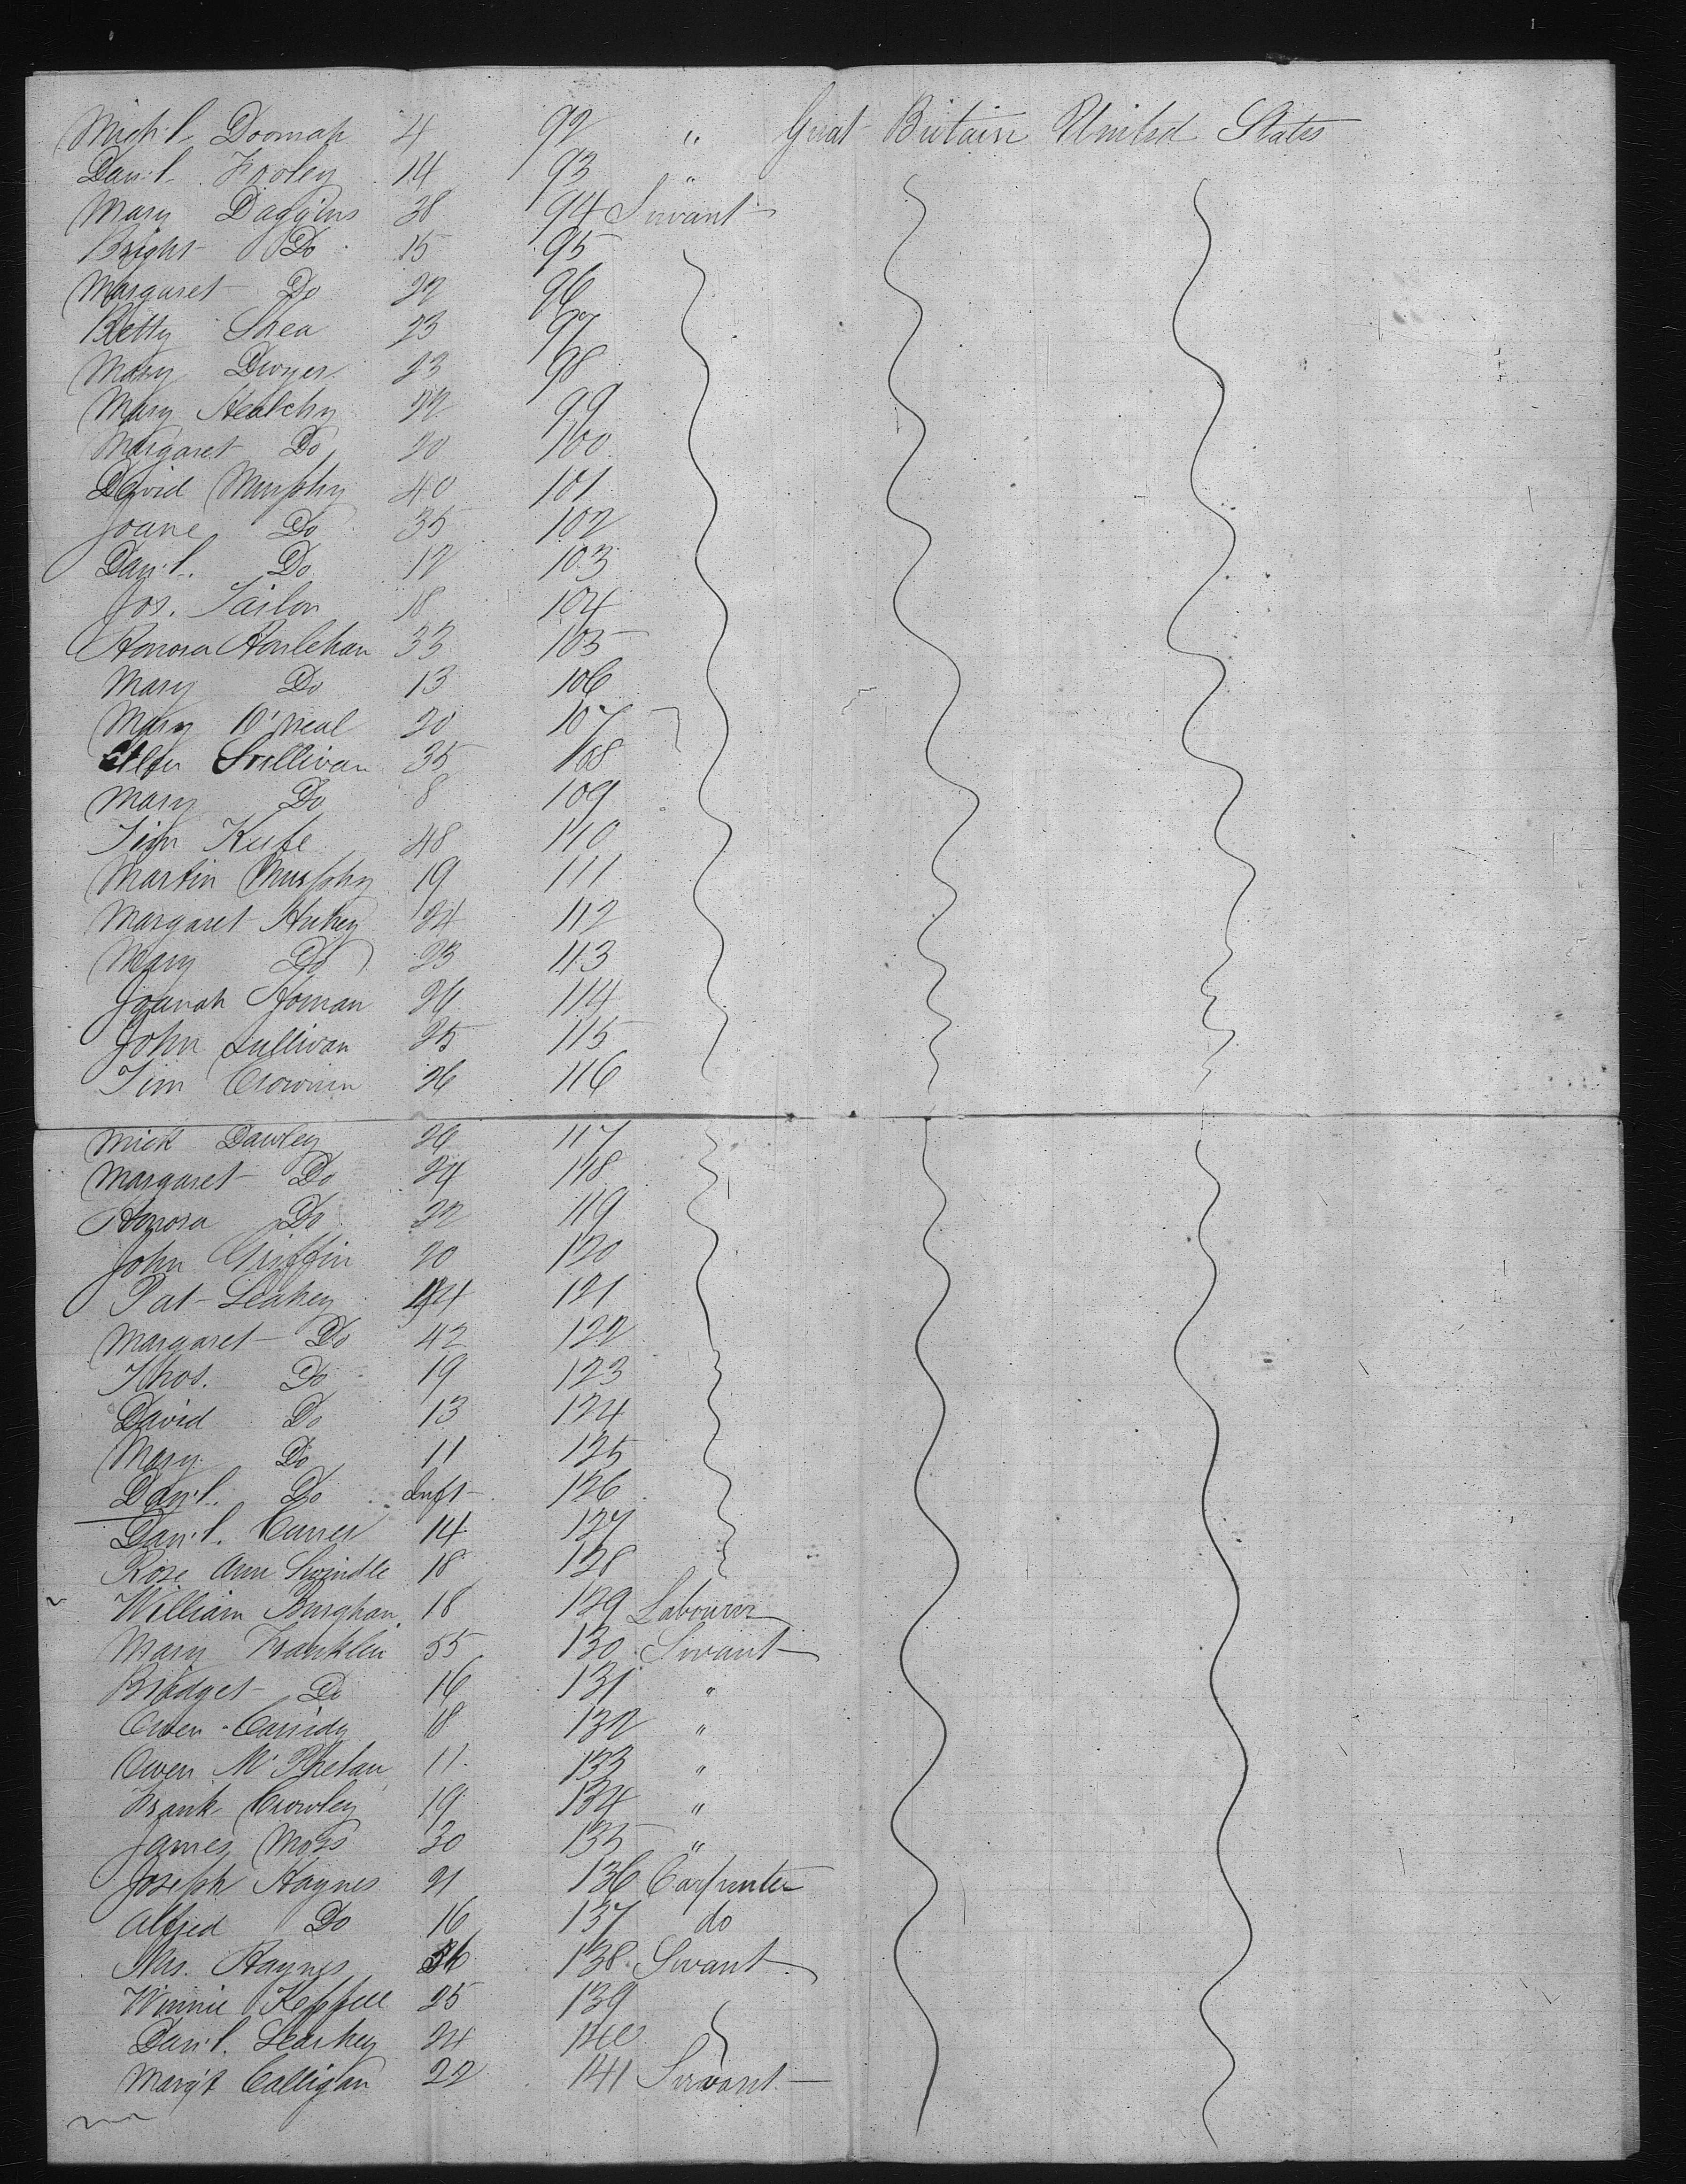 Mich'l Doomah 4 92 " Great Britain United States
Dan'l Fooley 14 93 "
Mary Daggins 38 94 Servant
Bright Do 15 95
Margaret Do 22 96
Betty Shea 23 97
Mary Dwyer 23 98
Mary Healchy 22 99
Margaret Do 20 100
David Murphy 40 101
Joane Do 35 102
Dan'l. Do 12 103
Jos. Tailor 18 104
Honora Hourlehan 33 105
Mary Do 13 106
Mary O'Neal 20 107
Ellen Sullivan 35 108
Mary Do 8 109
Tim Keefe 48 110
Martin Murphy 19 111
Margaret Hickey 24 112
Mary Do 23 113
Joanah Homan 26 114
John Sullivan 25 115
Tim Crownin 26 116
Mick Dawley 26 117
Margaret Do 24 118
Honora Do 22 119
John Griffin 20 120
Pat Leahey 44 121
Margaret Do 42 122
Thos. Do 19 123
David Do 13 124
Mary Do 11 125
Dan'l. Do Inft 126
Dan'l. 14 127
Rose Ann Swindle 18 128
William Burghan 18 129 Labourer
Mary Franklin 55 130 Servant
Bridget Do 16 131 "
Owen Cassidy 18 132 "
Owen McPhelan 11 133 "
Frank Crowley 19 134 "
James Moss 30 135 "
Joseph Haynes 21 136 Carpenter
Alfred Do 16 137 do
Mrs. Haynes 36 138 Servant
Winnie Keppell 25 139
Dan'l. Learhey 24 140
Marg't Calligan 22 141 Servant